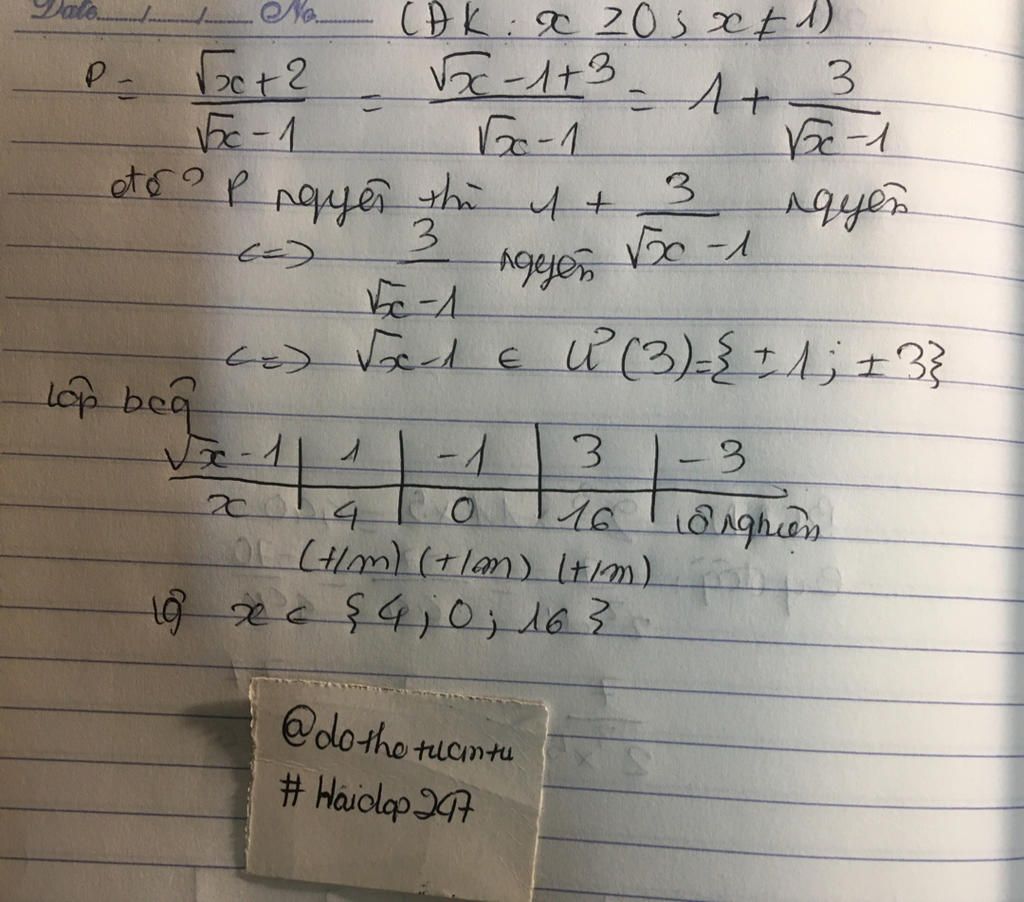 Date / / No (ĐK : x ≥ 0 ; x ≠ 1)
P = (√x + 2)/(√x - 1) = (√x - 1 + 3)/(√x - 1) = 1 + 3/(√x - 1)
để P nguyên thì 1 + 3/(√x - 1) nguyên
<=> 3/(√x - 1) nguyên
<=> √x - 1 ∈ Ư(3) = { ± 1 ; ± 3}
Lập bảng
√x - 1 | 1 | -1 | 3 | -3
x | 4 | 0 | 16 | Vô nghiệm
(t/m) (t/m) (t/m)
Vậy x ∈ { 4 ; 0 ; 16 }
@dothetuantu
# Hoidap247